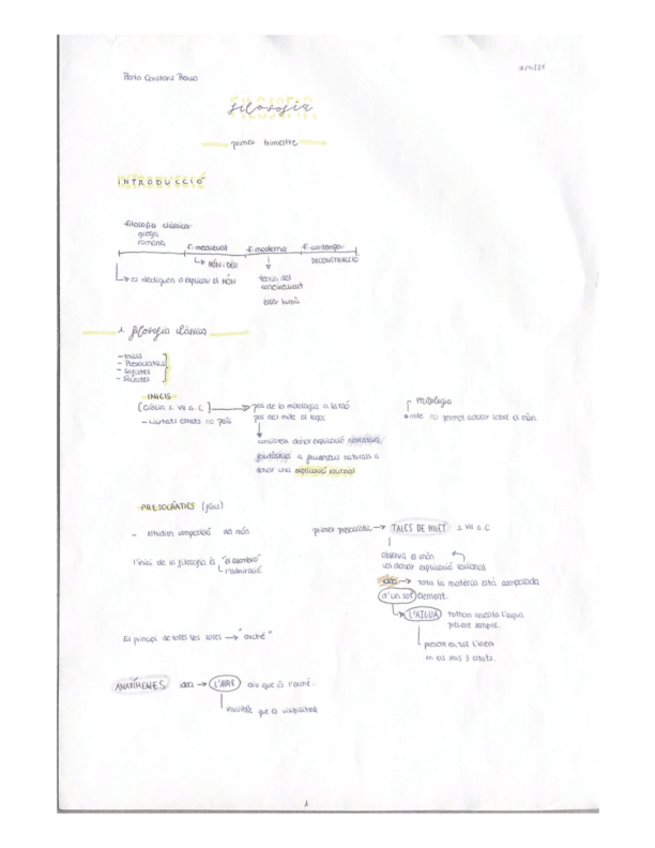 filosofia
primer trimestre
INTRODUCCIÓ
filosofia clàssica
grega
romana
f. medieval
f. moderna
f. contemp.
MÓN i DÉU
DECONSTRUCCIÓ
es dediquen a explicar el MÓN
teoria del
coneixement
ésser humà
1. filosofia clàssica
- Inicis
- Presocràtics
- Sofistes
- Sòcrates
INICIS
(Grècia s. VII a. C)
pas de la mitologia a la raó
pas del mite al logos
- ciutats estats no país
Mitologia
mite no permet actuar sobre el món.
consisteix donar explicació
a fenomens naturals a
donar una explicació racional
PRESOCRÀTICS (físics)
- estudien composició del món
primer presocràtic → TALES DE MILET s. VII a. C
l'inici de la filosofia és "el asombro"
l'admiració.
observa el món
vol donar explicació racional
idea → tota la matèria està composada
d'un sol element.
L'AIGUA
tothom necessita l'aigua
present sempre.
present en tot l'univers
en els seus 3 estats.
El principi de totes les coses → "arché"
ANAXÍMENES idea → L'AIRE això que és l'arché.
invisible que es
1